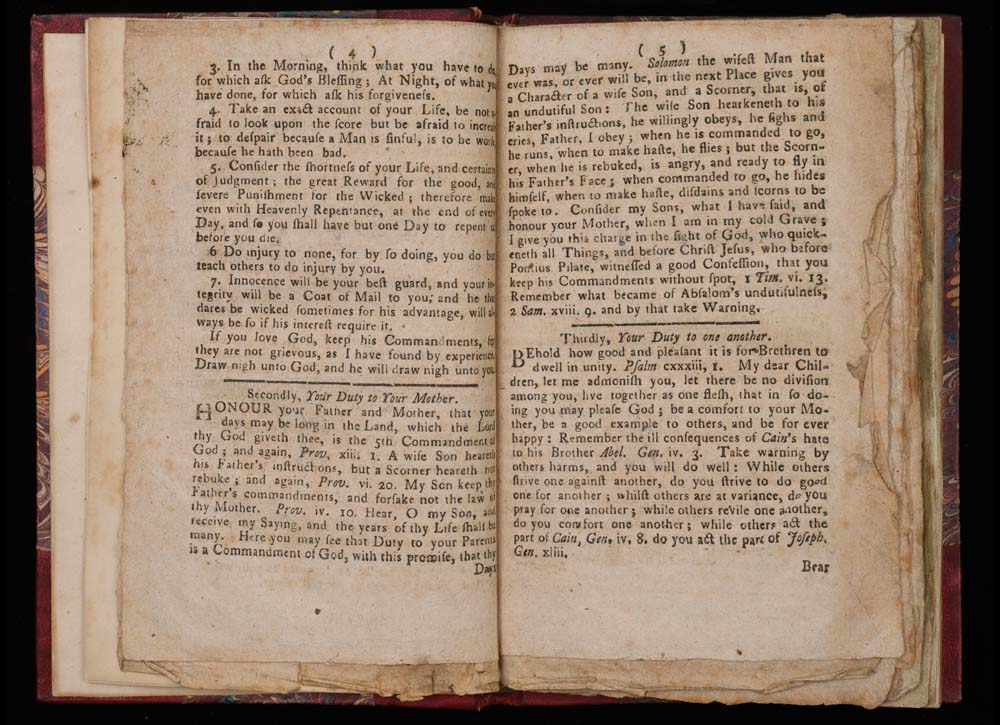 ( 4 )
3. In the Morning, think what you have to do,
for which aſk God's Bleſſing ; At Night, of what you
have done, for which aſk his forgiveneſs.
4. Take an exact account of your Life, be not a-
fraid to look upon the ſcore but be afraid to increaſe
it ; to deſpair becauſe a Man is ſinful, is to be work
becauſe he hath been bad.
5. Conſider the ſhortneſs of your Life, and certainty
of Judgment ; the great Reward for the good, and
ſevere Puniſhment for the Wicked ; therefore make
even with Heavenly Repentance, at the end of every
Day, and ſo you ſhall have but one Day to repent of
before you die.
6 Do injury to none, for by ſo doing, you do but
teach others to do injury by you.
7. Innocence will be your beſt guard, and your in-
tegrity will be a Coat of Mail to you, and he that
dares be wicked ſometimes for his advantage, will al-
ways be ſo if his intereſt require it.
If you love God, keep his Commandments, for
they are not grievous, as I have found by experience,
Draw nigh unto God, and he will draw nigh unto you.
Secondly, Your Duty to Your Mother.
HONOUR your Father and Mother, that your
days may be long in the Land, which the Lord
thy God giveth thee, is the 5th Commandment of
God ; and again, Prov. xiii. 1. A wiſe Son heareth
his Father's inſtructions, but a Scorner heareth not
rebuke ; and again, Prov. vi. 20. My Son keep thy
Father's commandments, and forſake not the law of
thy Mother. Prov. iv. 10. Hear, O my Son, and
receive my Saying, and the years of thy Life ſhall be
many. Here you may ſee that Duty to your Parents
is a Commandment of God, with this promiſe, that thy
Days
( 5 )
Days may be many. Solomon the wiſeſt Man that
ever was, or ever will be, in the next Place gives you
a Character of a wiſe Son, and a Scorner, that is, of
an undutiful Son : The wiſe Son hearkeneth to his
Father's inſtructions, he willingly obeys, he ſighs and
cries, Father, I obey ; when he is commanded to go,
he runs, when to make haſte, he flies ; but the Scorn-
er, when he is rebuked, is angry, and ready to fly in
his Father's Face ; when commanded to go, he hides
himſelf, when to make haſte, diſdains and ſcorns to be
ſpoke to. Conſider my Sons, what I have ſaid, and
honour your Mother, when I am in my cold Grave ;
I give you this charge in the ſight of God, who quick-
eneth all Things, and before Chriſt Jeſus, who before
Pontius Pilate, witneſſed a good Confeſſion, that you
keep his Commandments without ſpot, 1 Tim. vi. 13.
Remember what became of Abſalom's undutifulneſs,
2 Sam. xviii. 9. and by that take Warning.
Thirdly, Your Duty to one another.
BEhold how good and pleaſant it is for Brethren to
dwell in unity. Pſalm cxxxiii, 1. My dear Chil-
dren, let me admoniſh you, let there be no diviſion
among you, live together as one fleſh, that in ſo do-
ing you may pleaſe God ; be a comfort to your Mo-
ther, be a good example to others, and be for ever
happy : Remember the ill conſequences of Cain's hate
to his Brother Abel. Gen. iv. 3. Take warning by
others harms, and you will do well : While others
ſtrive one againſt another, do you ſtrive to do good
one for another ; whilſt others are at variance, do you
pray for one another ; while others revile one another,
do you comfort one another ; while others act the
part of Cain, Gen. iv. 8. do you act the part of Joſeph.
Gen. xliii.
Bear